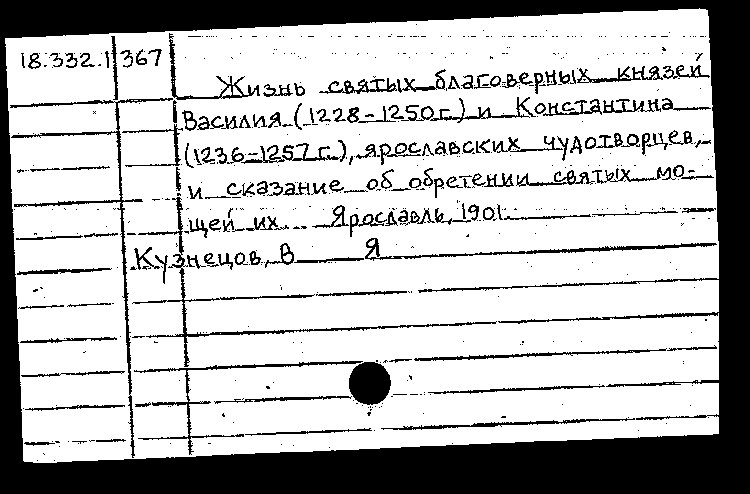 18.332.1 367
Жизнь святых благоверных князей
Василия (1228-1250г.) и Константина
(1236-1257г.), ярославских чудотворцев,
и сказание об обретении святых мо-
щей их Ярославль, 1901.
Кузнецов, В Я